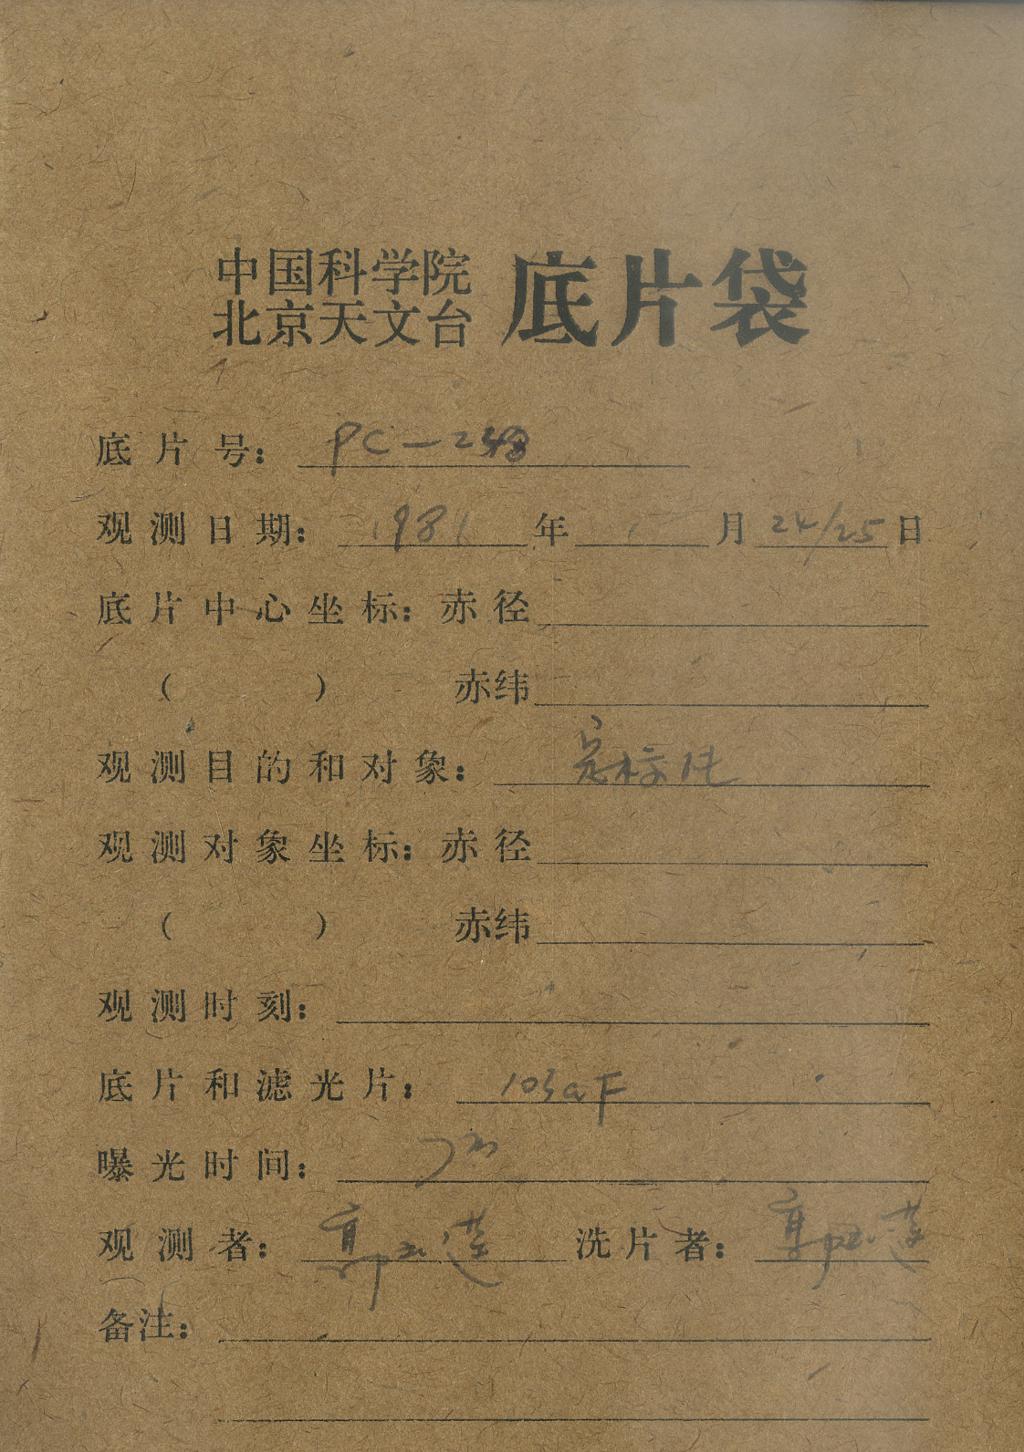 中国科学院
北京天文台 底片袋
底片号: PC-248
观测日期: 1981年 1 月 24/25 日
底片中心坐标: 赤径
( ) 赤纬
观测目的和对象: 定标
观测对象坐标: 赤径
( ) 赤纬
观测时刻:
底片和滤光片: 103aF
曝光时间: 7m
观测者: 郭红莲 洗片者: 郭红莲
备注: